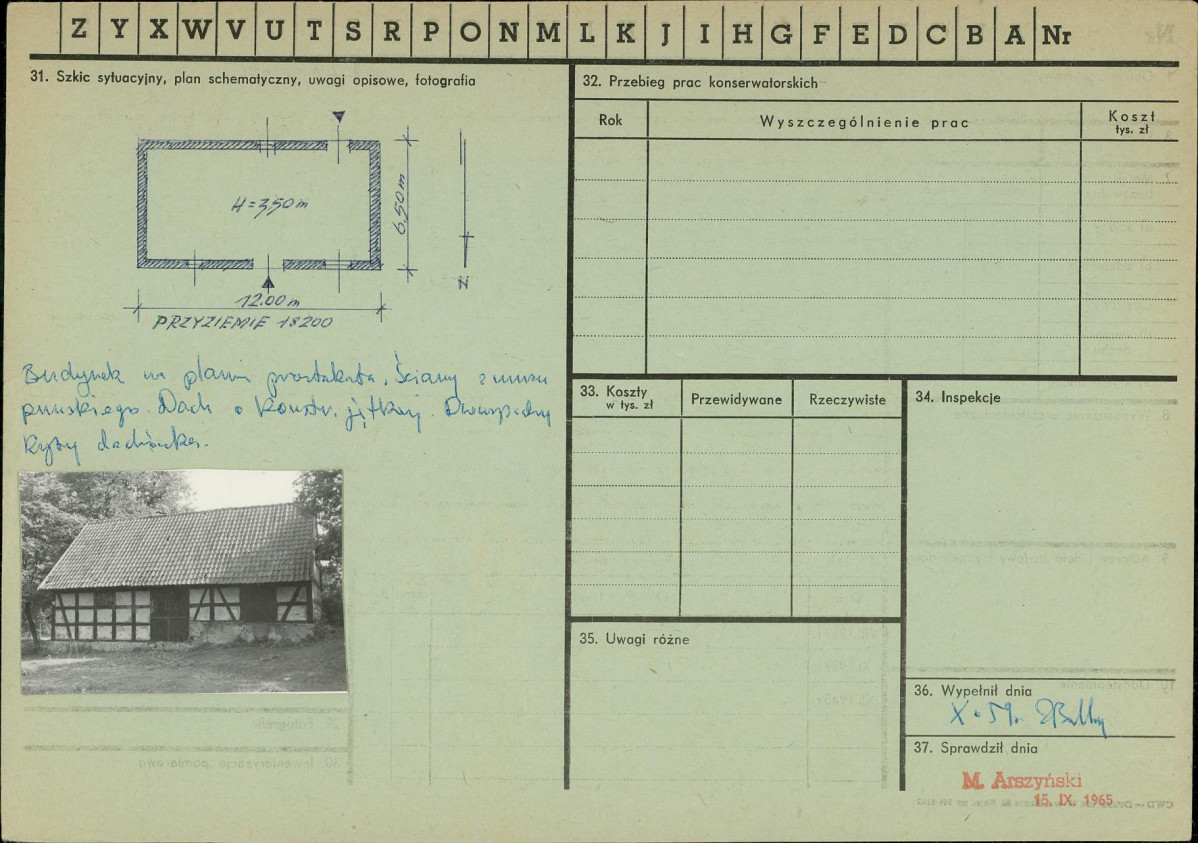 Z Y X W V U T S R P O N M L K J I H G F E D C B A Nr
31. Szkic sytuacyjny, plan schematyczny, uwagi opisowe, fotografia
H=3,50 m
6.50 m
N
12.00 m
PRZYZIEMIE 1:200
Budynek na planie prostokąta. Ściany z muru
pruskiego. Dach o konstr. jętkowej. Dwuspadowy
kryty dachówką.
32. Przebieg prac konserwatorskich
Rok
Wyszczególnienie prac
Koszt
tys. zł
33. Koszty
w tys. zł
Przewidywane
Rzeczywiste
34. Inspekcje
35. Uwagi różne
36. Wypełnił dnia
X. 59r.
37. Sprawdził dnia
M. Arszyński
15. IX. 1965